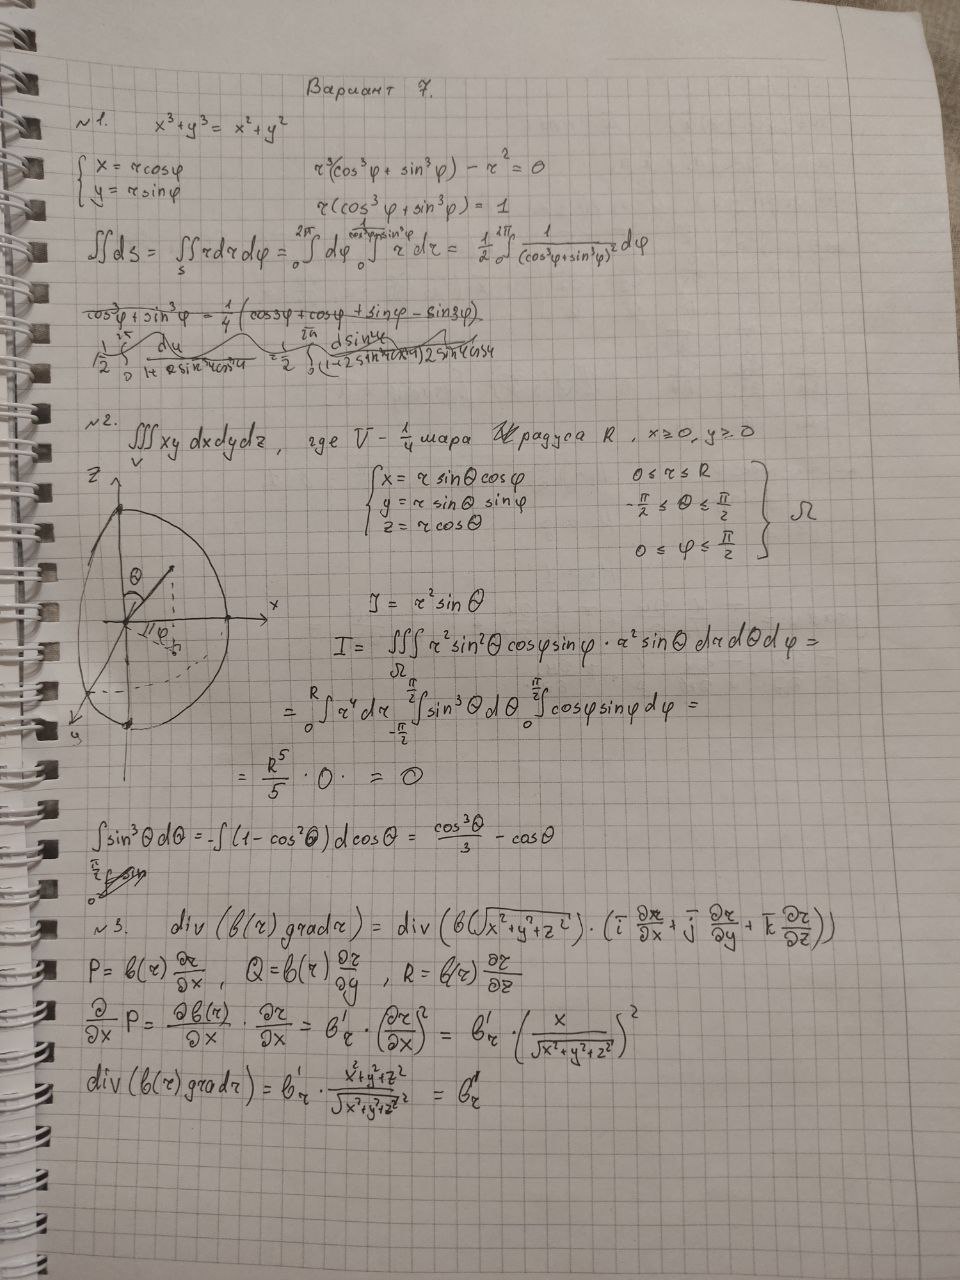 Вариант 7.
№1. x³+y³ = x²+y²
{ x = r cosφ
y = r sinφ
r³(cos³φ + sin³φ) − r² = 0
r(cos³φ + sin³φ) = 1
∬ds = ∬_S r dr dφ = ₀∫^2π dφ ₀∫^(1/(cos³φ+sin³φ)) r dr = 1/2 ₀∫^2π 1/(cos³φ+sin³φ)² dφ
cos³φ + sin³φ = 1/4 (cos3φ + cosφ + sinφ − sin3φ)
№2. ∭_V xy dxdydz, где V − 1/4 шара радуса R, x ≥ 0, y ≥ 0
Z
θ
x
φ
y
{ x = r sinθ cosφ
y = r sinθ sinφ
z = r cosθ
0 ≤ r ≤ R
−π/2 ≤ θ ≤ π/2
0 ≤ φ ≤ π/2
} Ω
I = r² sinθ
I = ∭_Ω r² sin²θ cosφ sinφ · r² sinθ dr dθ dφ =
= ₀∫^R r⁴ dr _(−π/2)∫^(π/2) sin³θ dθ ₀∫^(π/2) cosφ sinφ dφ =
= R⁵/5 · 0 · = 0
∫sin³θ dθ = −∫(1−cos²θ) d cosθ = cos³θ/3 − cosθ
№3. div(b(r) grad r) = div(b(√(x²+y²+z²)) · (i̅ ∂r/∂x + j̅ ∂r/∂y + k̅ ∂r/∂z))
P = b(r) ∂r/∂x, Q = b(r) ∂r/∂y, R = b(r) ∂r/∂z
∂/∂x P = ∂b(r)/∂x · ∂r/∂x = b'_r · (∂r/∂x)² = b'_r · (x/√(x²+y²+z²))²
div(b(r) grad r) = b'_r · (x²+y²+z²)/√(x²+y²+z²)² = b'_r